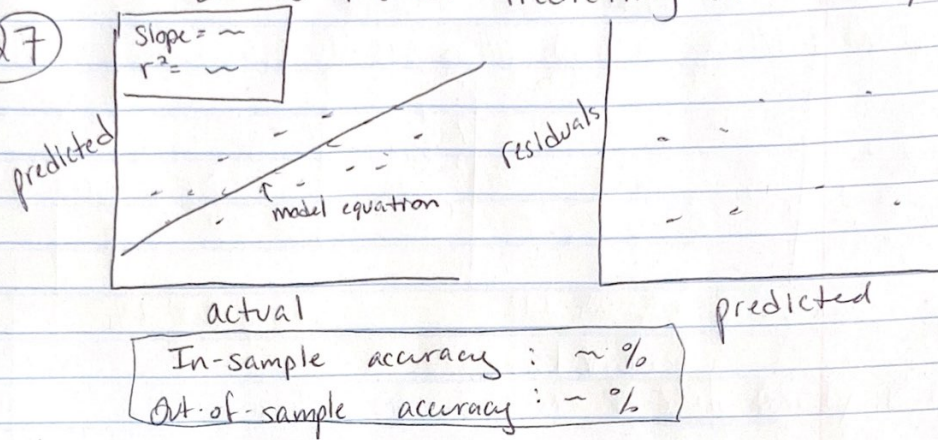 27
Slope = ~
r²= ~
predicted
model equation
actual
residuals
predicted
In-sample accuracy : ~ %
Out-of-sample accuracy : ~ %